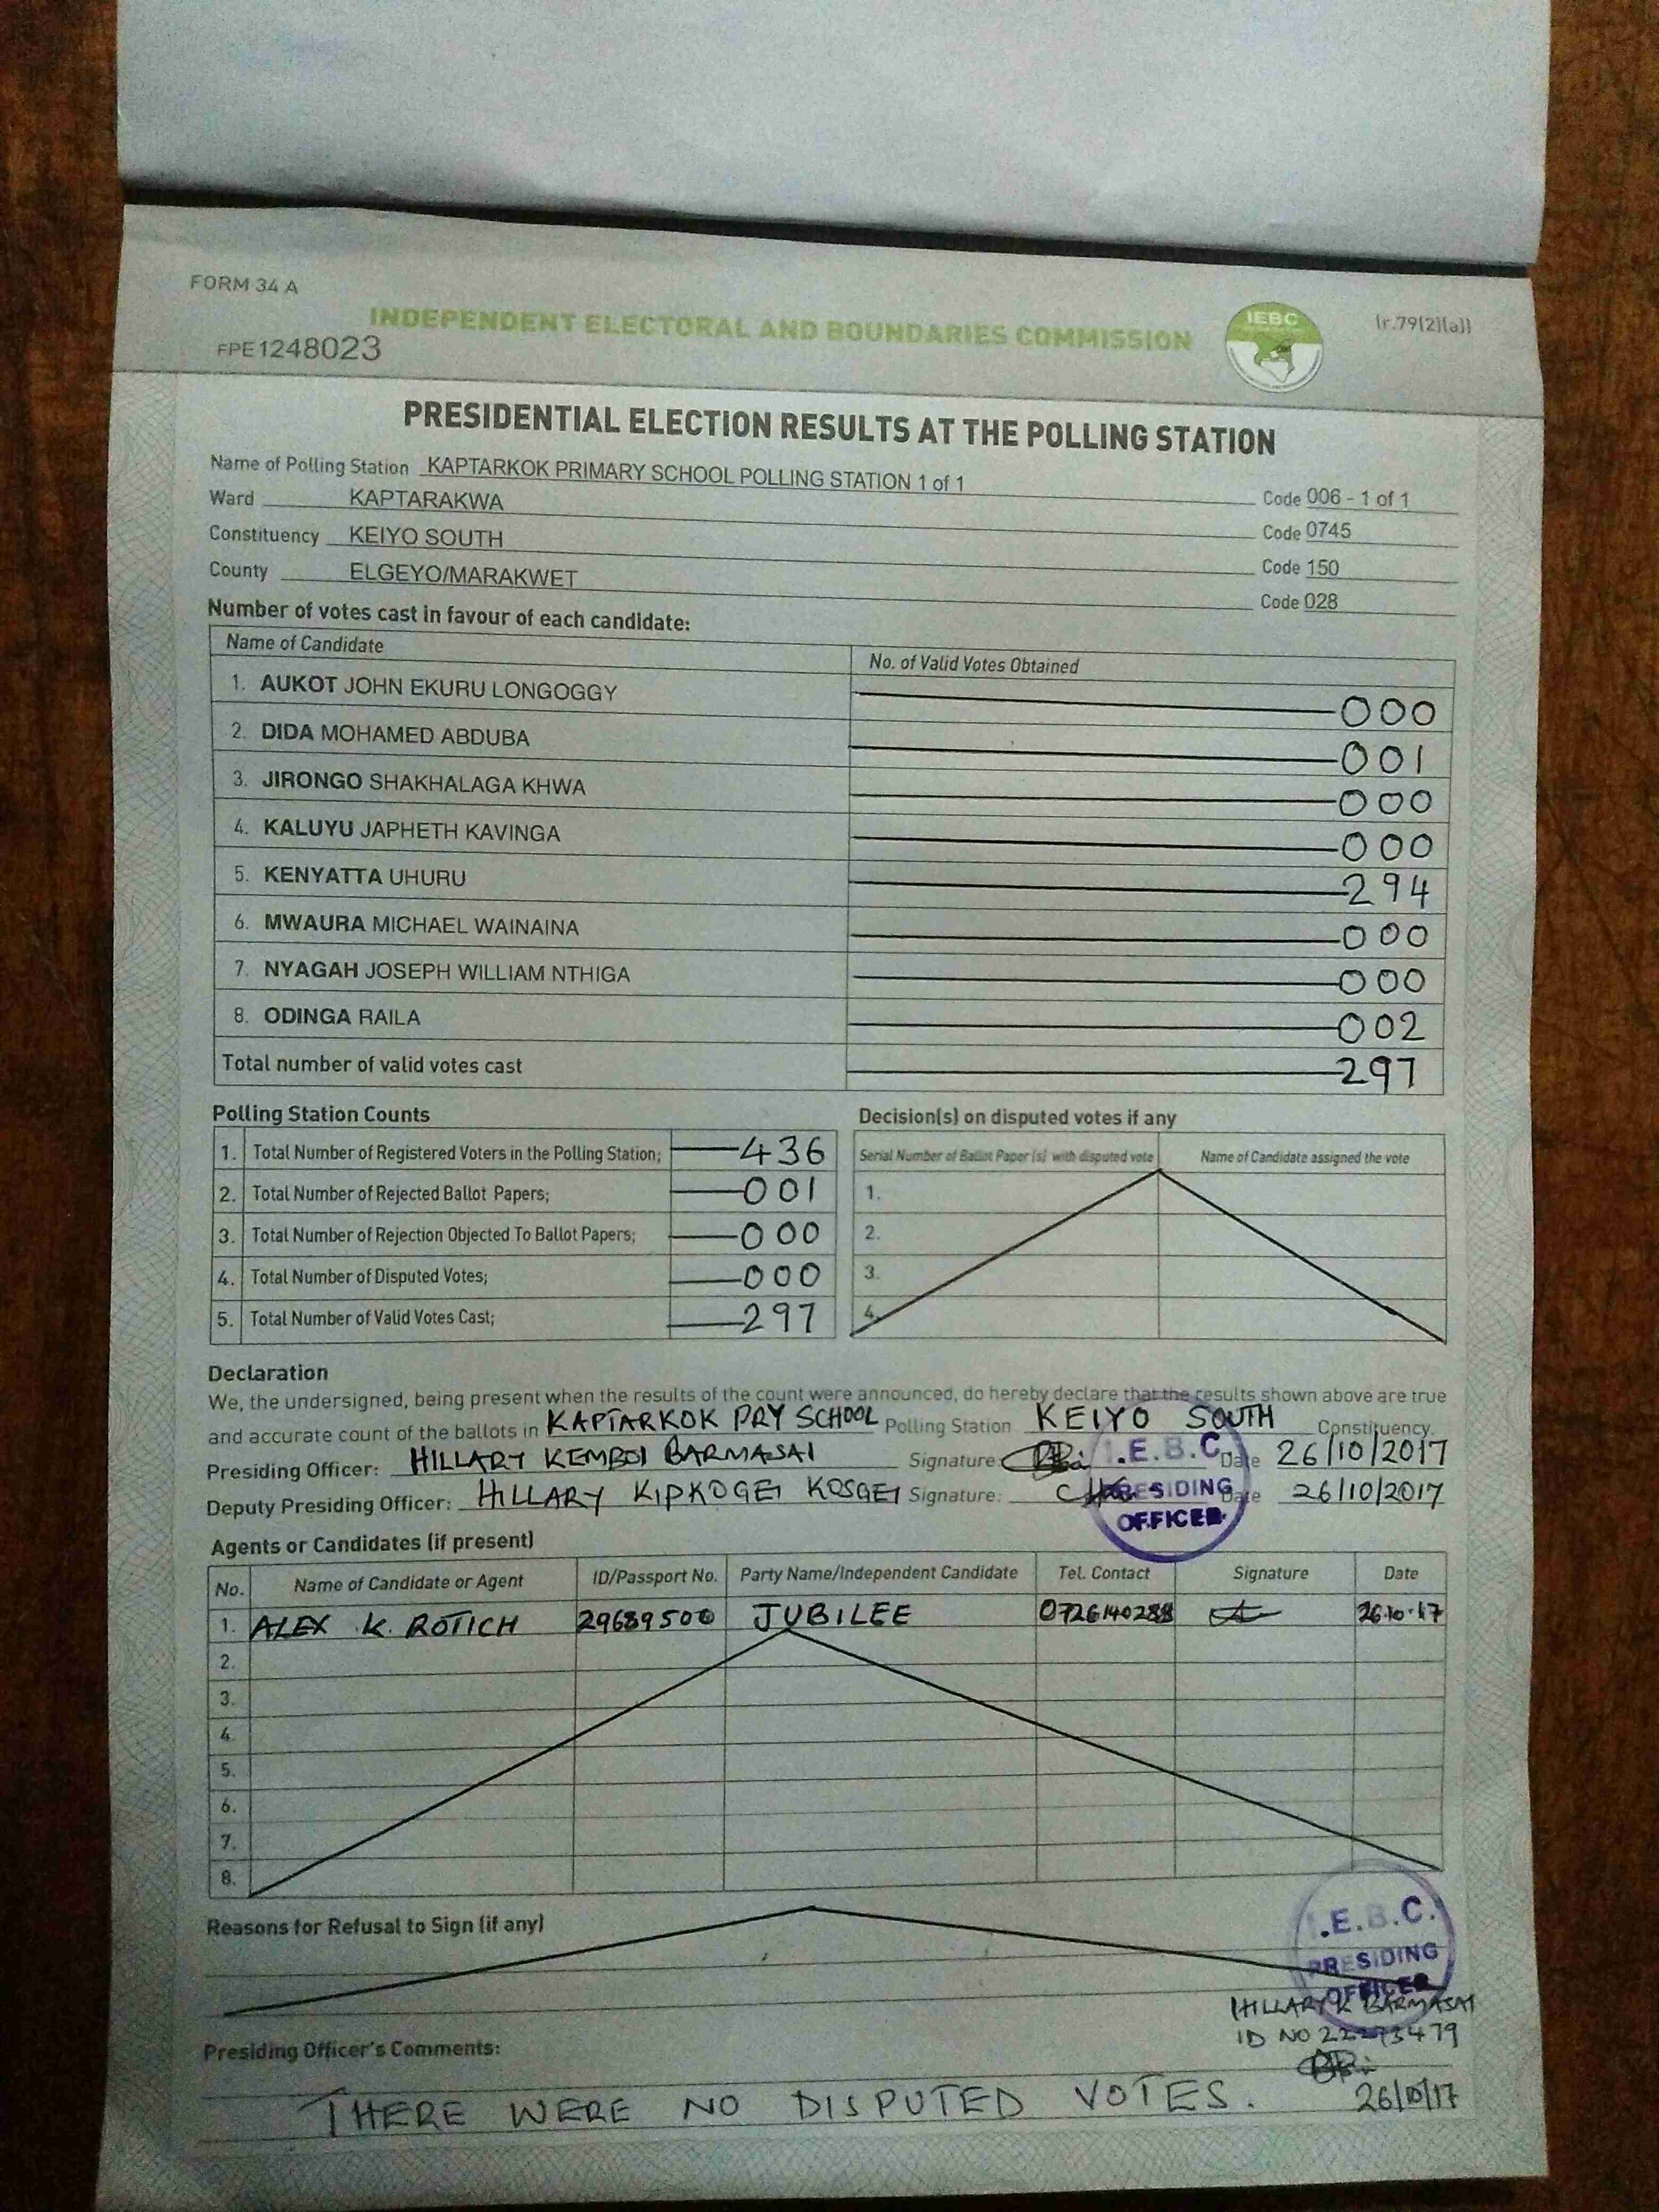 FORM 34 A
INDEPENDENT ELECTORAL AND BOUNDARIES COMMISSION
IEBC
(r.79(2)(a))
FPE1248023
PRESIDENTIAL ELECTION RESULTS AT THE POLLING STATION
Name of Polling Station KAPTARKOK PRIMARY SCHOOL POLLING STATION 1 of 1 Code 006 - 1 of 1
Ward KAPTARAKWA Code 0745
Constituency KEIYO SOUTH Code 150
County ELGEYO/MARAKWET Code 028
Number of votes cast in favour of each candidate:
Name of Candidate No. of Valid Votes Obtained
1. AUKOT JOHN EKURU LONGOGGY 000
2. DIDA MOHAMED ABDUBA 001
3. JIRONGO SHAKHALAGA KHWA 000
4. KALUYU JAPHETH KAVINGA 000
5. KENYATTA UHURU 294
6. MWAURA MICHAEL WAINAINA 000
7. NYAGAH JOSEPH WILLIAM NTHIGA 000
8. ODINGA RAILA 002
Total number of valid votes cast 297
Polling Station Counts
1. Total Number of Registered Voters in the Polling Station; 436
2. Total Number of Rejected Ballot Papers; 001
3. Total Number of Rejection Objected To Ballot Papers; 000
4. Total Number of Disputed Votes; 000
5. Total Number of Valid Votes Cast; 297
Decision(s) on disputed votes if any
Serial Number of Ballot Paper(s) with disputed vote Name of Candidate assigned the vote
1.
2.
3.
4.
Declaration
We, the undersigned, being present when the results of the count were announced, do hereby declare that the results shown above are true
and accurate count of the ballots in KAPTARKOK PRY SCHOOL Polling Station KEIYO SOUTH Constituency.
Presiding Officer: HILLARY KEMBOI BARMASAI Signature Date 26/10/2017
Deputy Presiding Officer: HILLARY KIPKOGEI KOSGEI Signature: Date 26/10/2017
I.E.B.C
PRESIDING
OFFICER
Agents or Candidates (if present)
No. Name of Candidate or Agent ID/Passport No. Party Name/Independent Candidate Tel. Contact Signature Date
1. ALEX K. ROTICH 29689500 JUBILEE 26.10.17
2.
3.
4.
5.
6.
7.
8.
Reasons for Refusal to Sign (if any)
I.E.B.C.
PRESIDING
OFFICER
HILLARY K BARMASAI
ID NO
26/10/17
Presiding Officer's Comments:
THERE WERE NO DISPUTED VOTES.